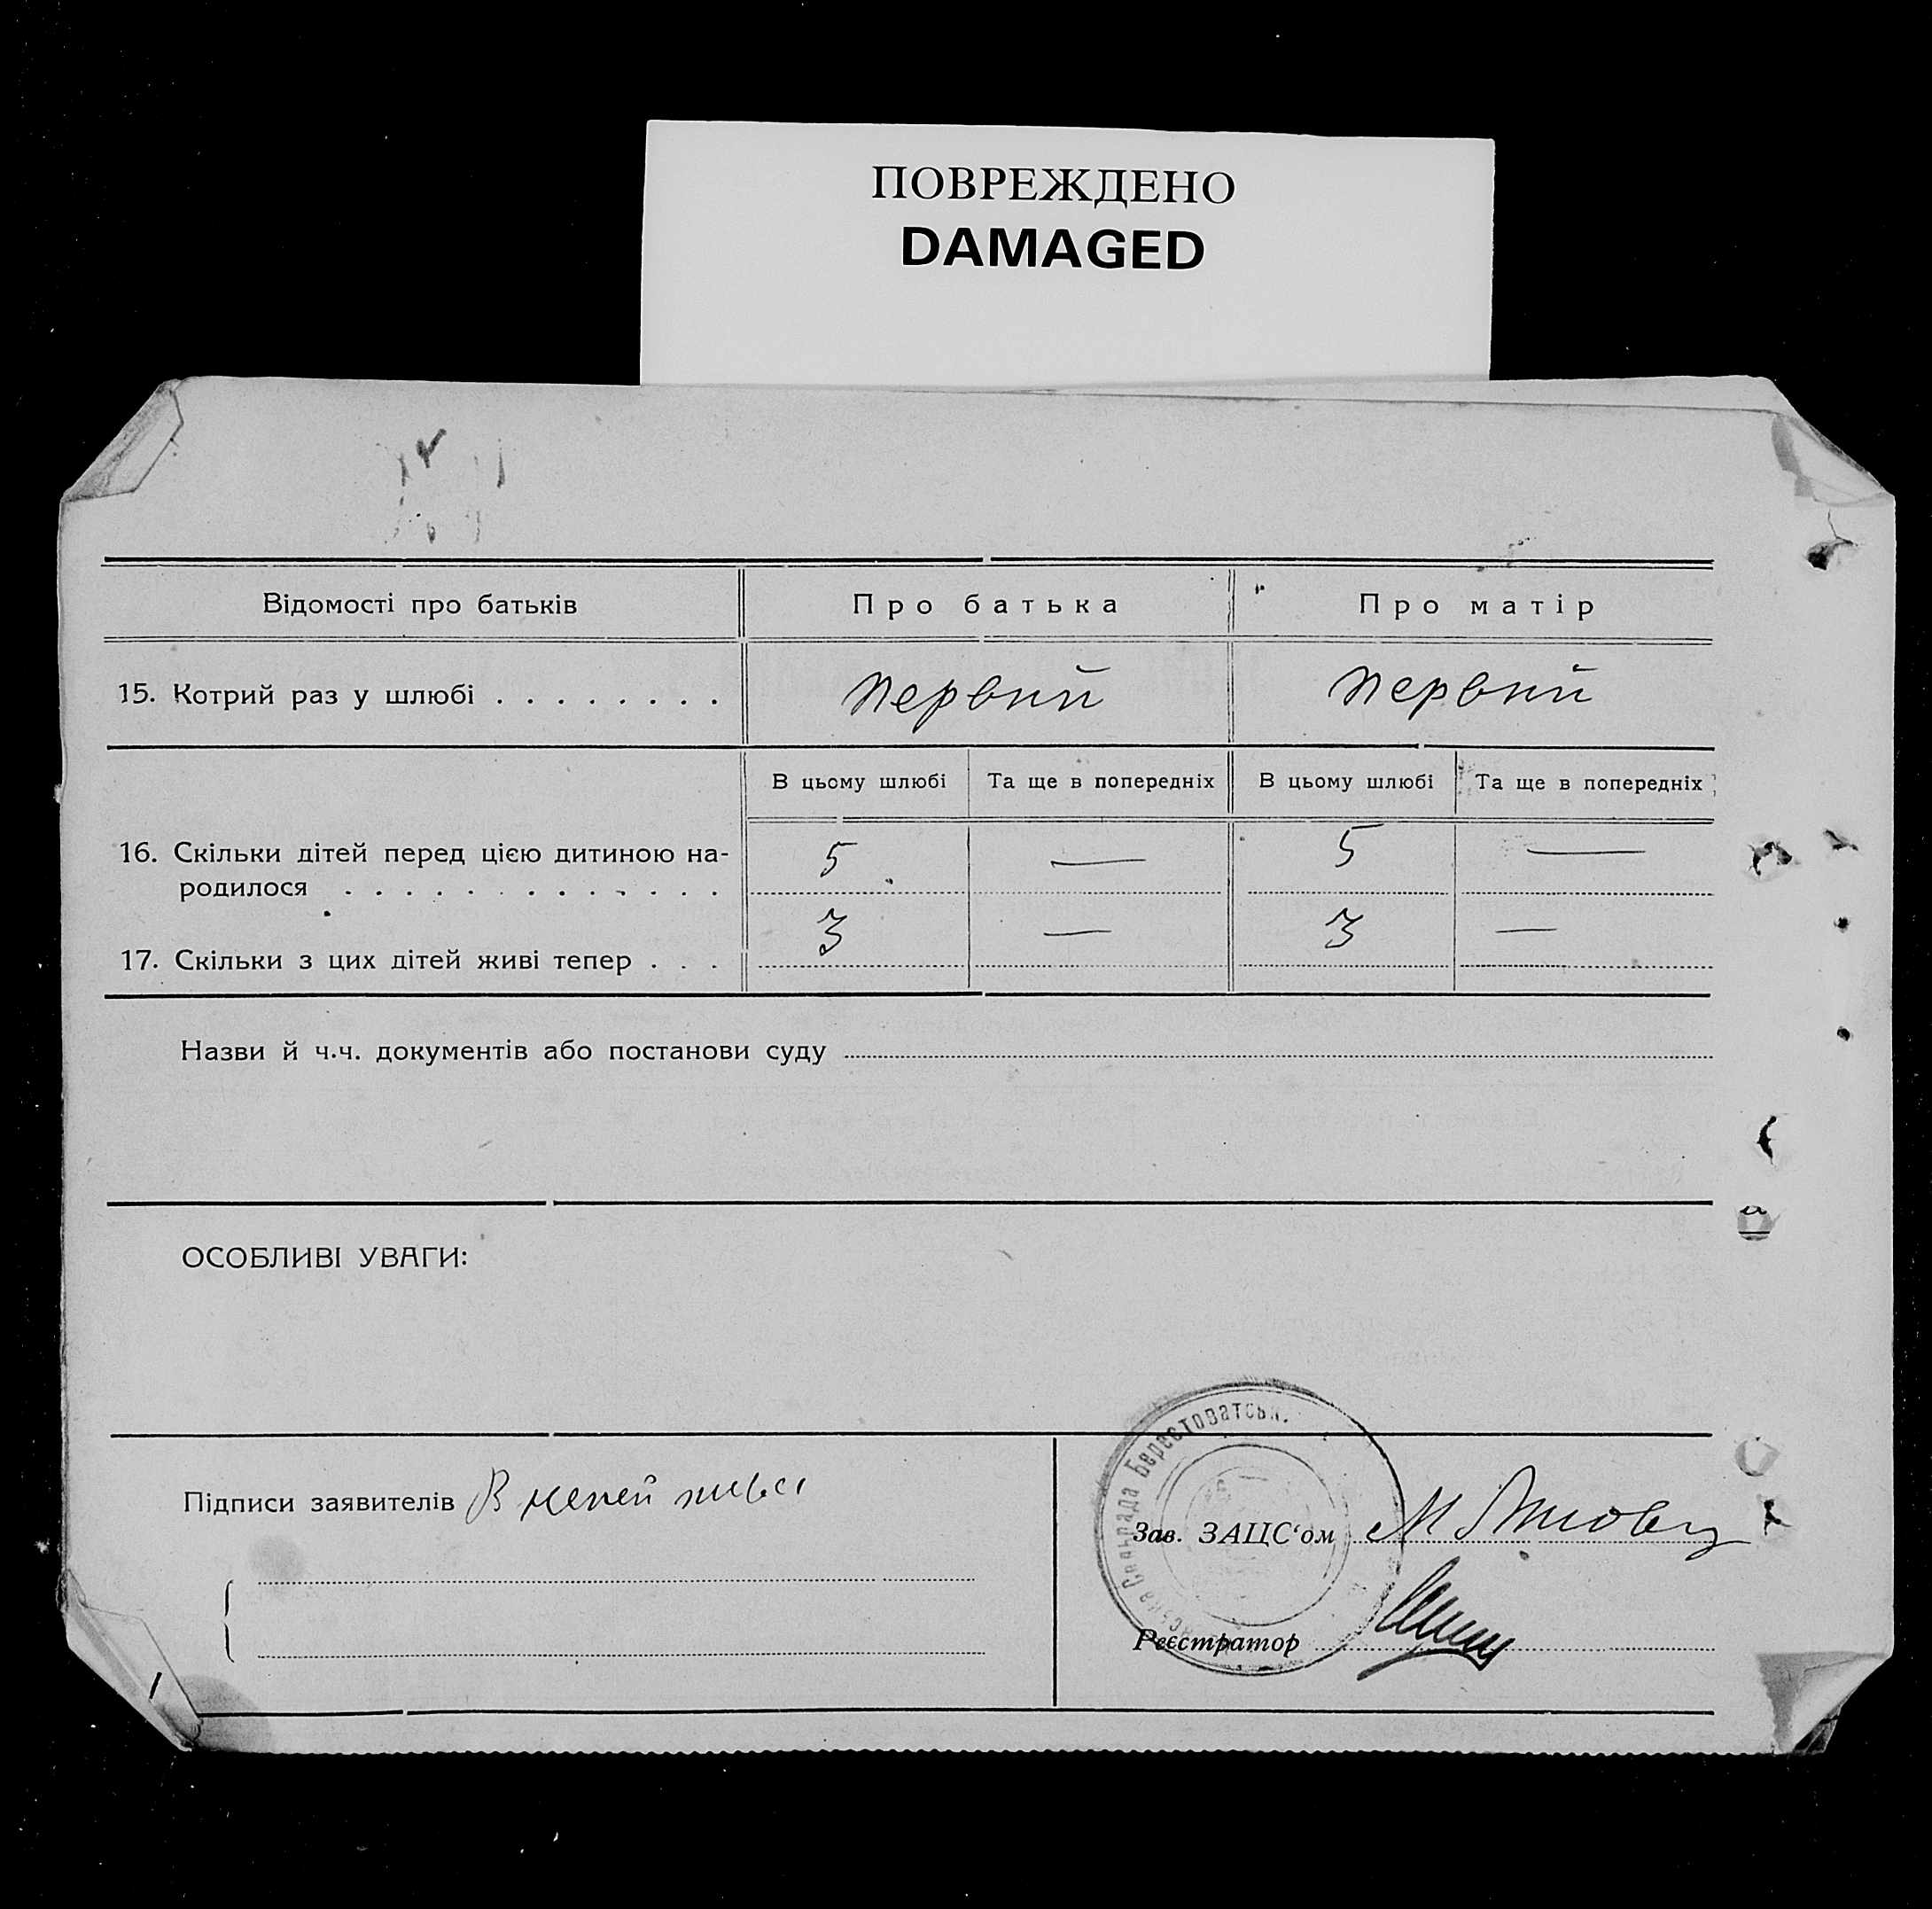 ПОВРЕЖДЕНО
DAMAGED
Відомості про батьків
Про батька
Про матір
15. Котрий раз у шлюбі . . . . . . . .
первий
первий
В цьому шлюбі
Та ще в попередніх
В цьому шлюбі
Та ще в попередніх
16. Скільки дітей перед цією дитиною на-
родилося . . . . . . . . . . . . .
5
—
5
—
17. Скільки з цих дітей живі тепер . . .
3
—
3
—
Назви й ч.ч. документів або постанови суду
ОСОБЛИВІ УВАГИ:
Підписи заявителів В
Сільрада Берестоватськ.
Зав. ЗАЦС‘ом М
Реєстратор